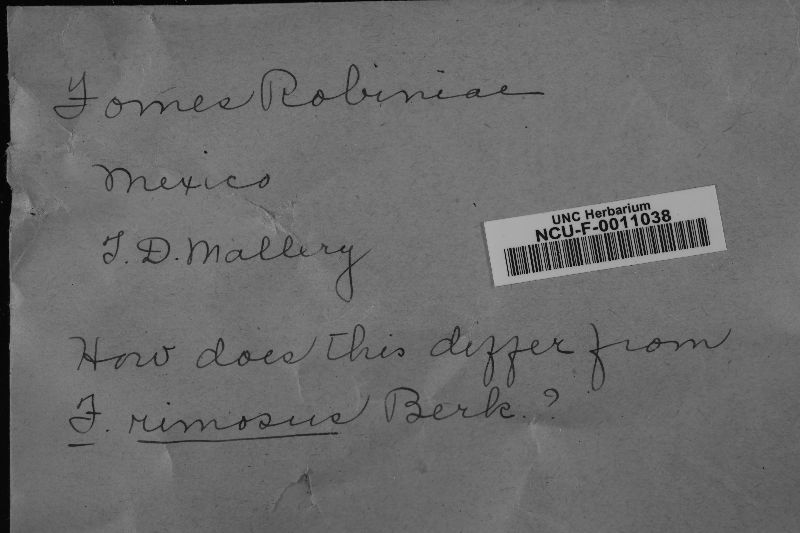 Fomes Robiniae
Mexico
T. D. Mallery
UNC Herbarium
NCU-F-0011038
How does this differ from
F. rimosus Berk.?